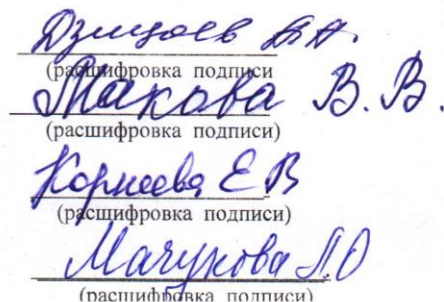 Дзицоев А.А.
(расшифровка подписи
Макова В.В.
(расшифровка подписи)
Корнеева Е В
(расшифровка подписи)
Мачукова Л.О
(расшифровка подписи)